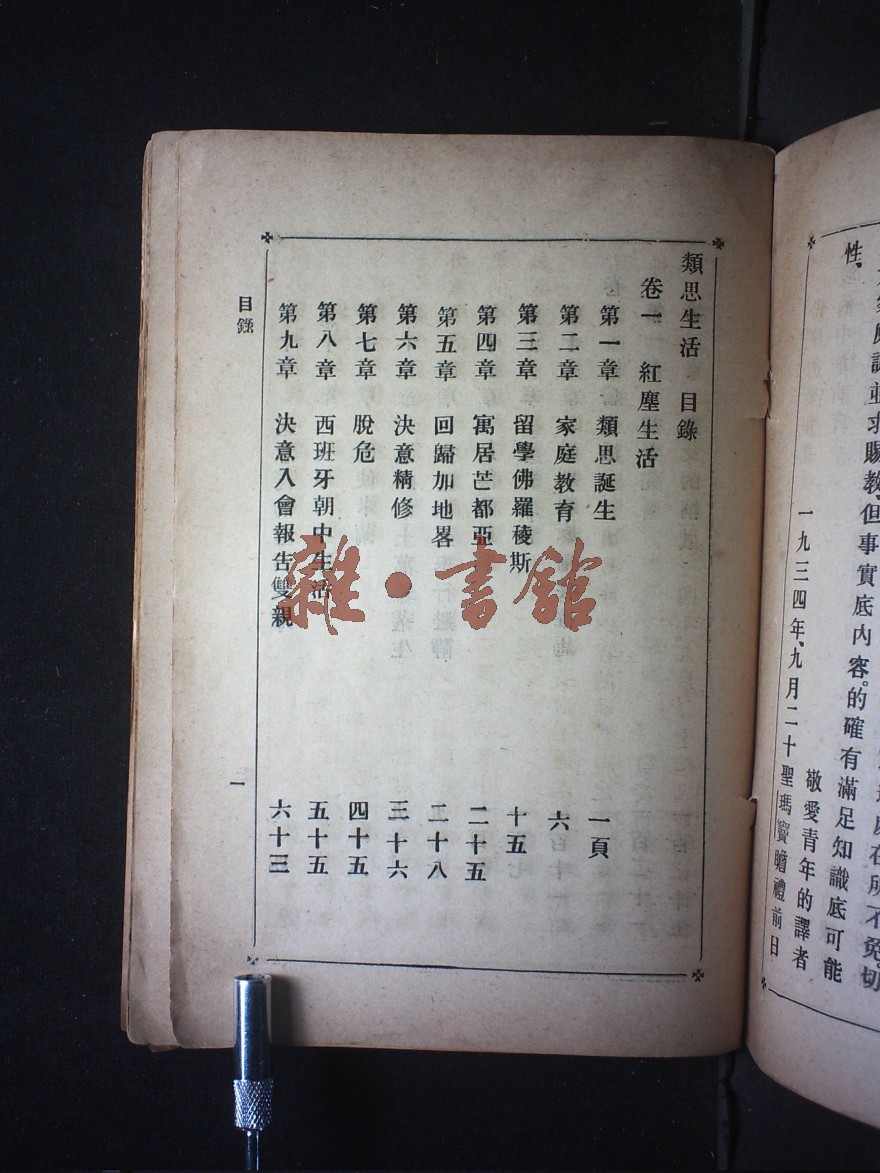 性、
並求賜教、但事實底內容。的確有滿足知識底可能
所不免。切
敬愛青年的譯者
一九三四年、九月二十聖瑪竇瞻禮前日
類思生活 目錄
卷一 紅塵生活
第一章 類思誕生 一頁
第二章 家庭教育 六
第三章 留學佛羅稜斯 十五
第四章 寓居芒都亞 二十五
第五章 回歸加地畧 二十八
第六章 決意精修 三十六
第七章 脫危 四十五
第八章 西班牙朝中生活 五十五
第九章 決意入會報告雙親 六十三
目錄
一
雜·書館